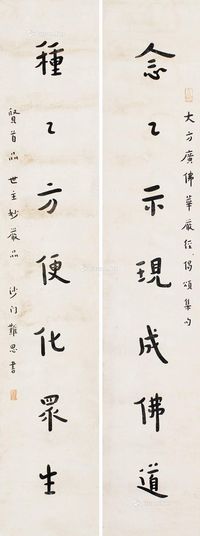 大方廣佛華嚴經偈頌集句
念〻示現成佛道
種〻方便化眾生
賢首品 世主妙嚴品 沙門難思書